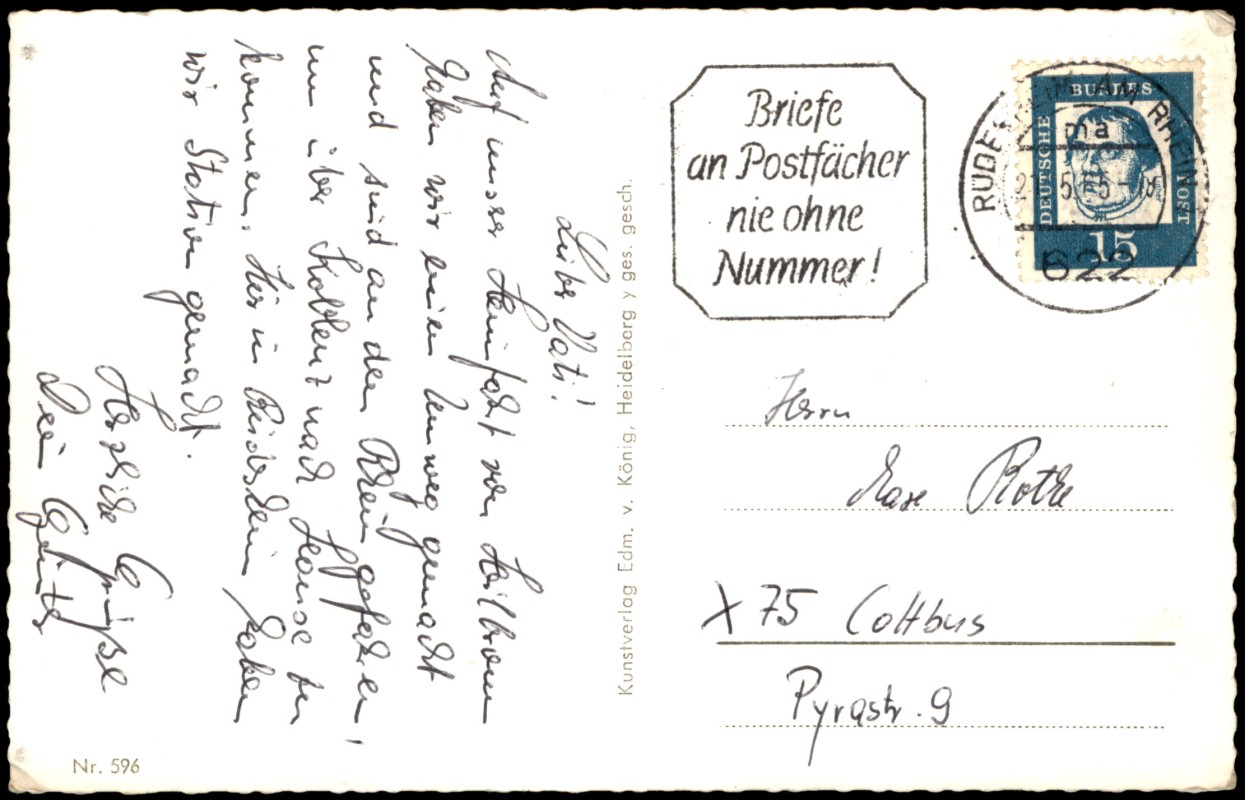 Lieber Vati!
Auf unserer Heimfahrt von Heilbronn
haben wir einen Umweg gemacht
und sind an den Rhein gefahren,
um über Koblenz nach Hause zu
kommen. Hier in Rüdesheim haben
wir Station gemacht.
Herzliche Grüße
Dein Günter
Nr. 596
Kunstverlag Edm. v. König, Heidelberg y ges. gesch.
Briefe
an Postfächer
nie ohne
Nummer!
RÜDESHEIM AM RHEIN
ma
622
DEUTSCHE
BUNDES
POST
15
Herrn
Max Rothe
X 75 Cottbus
Pyrastr. 9